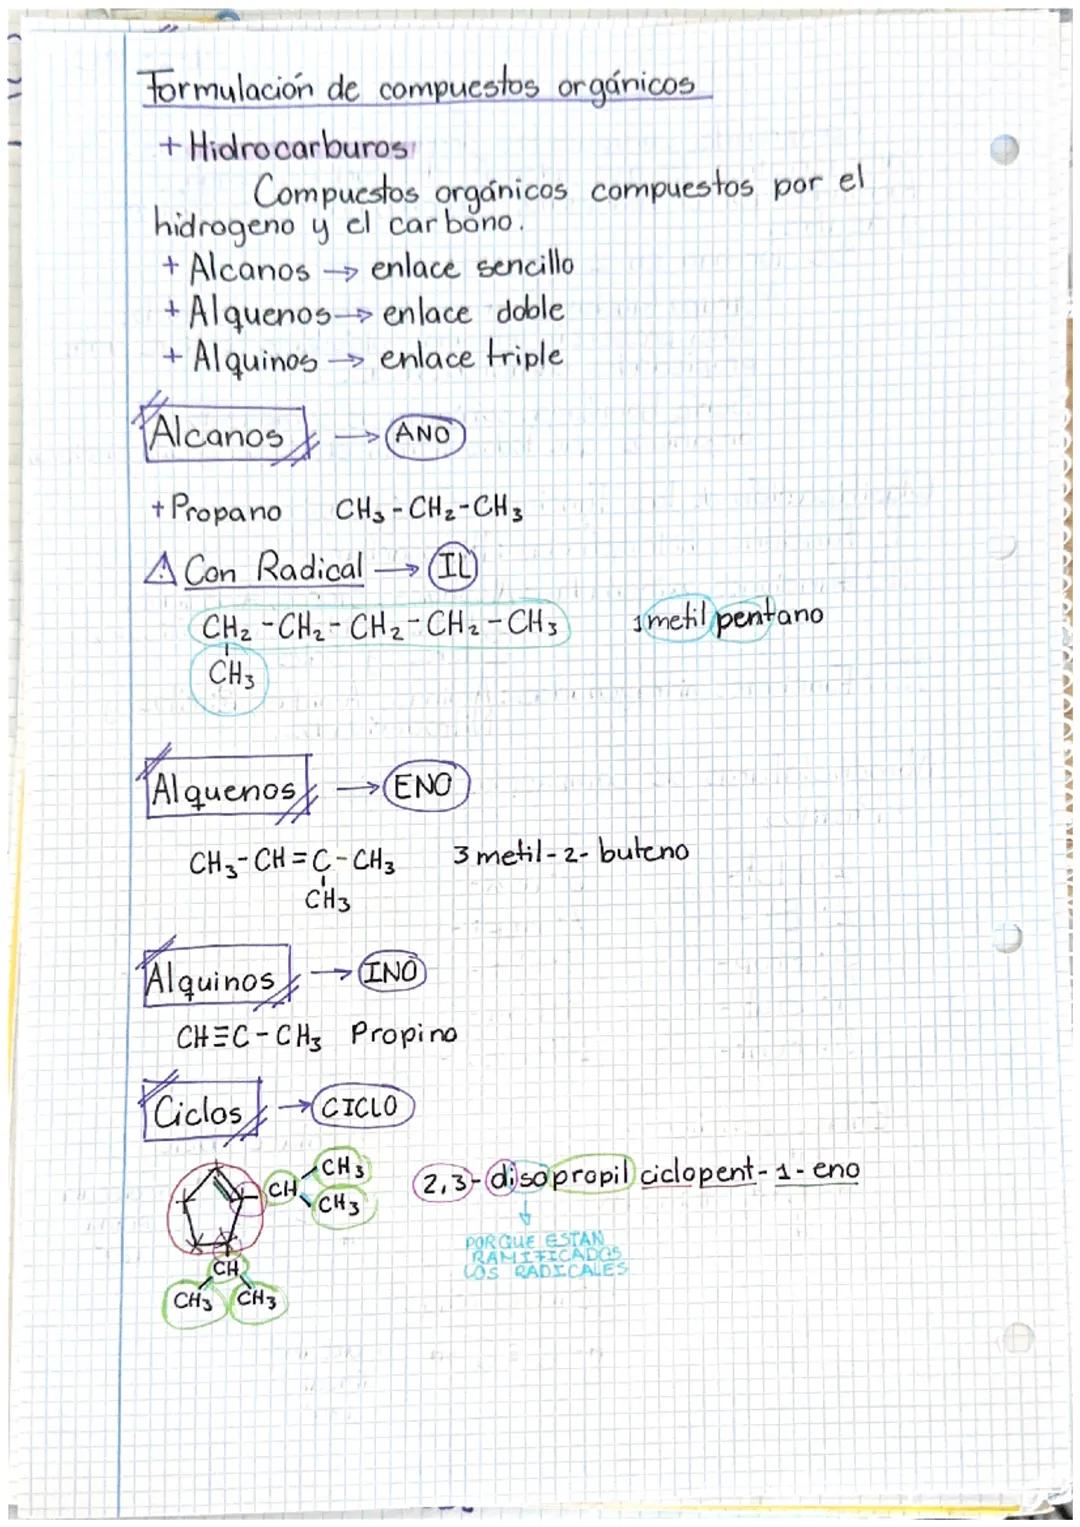 Formulación de compuestos orgánicos
+ Hidrocarburos
Compuestos orgánicos compuestos por el
hidrogeno y el carbono.
+ Alcanos → enlace sencillo
+ Alquenos → enlace doble
+ Alquinos → enlace triple
Alcanos → ANO
+ Propano CH₃-CH₂-CH₃
⚠ Con Radical → IL
CH₂-CH₂-CH₂-CH₂-CH₃ 1 metil pentano
CH₃
Alquenos → ENO
CH₃-CH=C-CH₃ 3 metil-2-buteno
CH₃
Alquinos → INO
CH≡C-CH₃ Propino
Ciclos → CICLO
CH₃
CH 2,3-disopropil ciclopent-1-eno
CH₃
PORQUE ESTAN
RAMIFICADOS
LOS RADICALES
CH
CH₃ CH₃